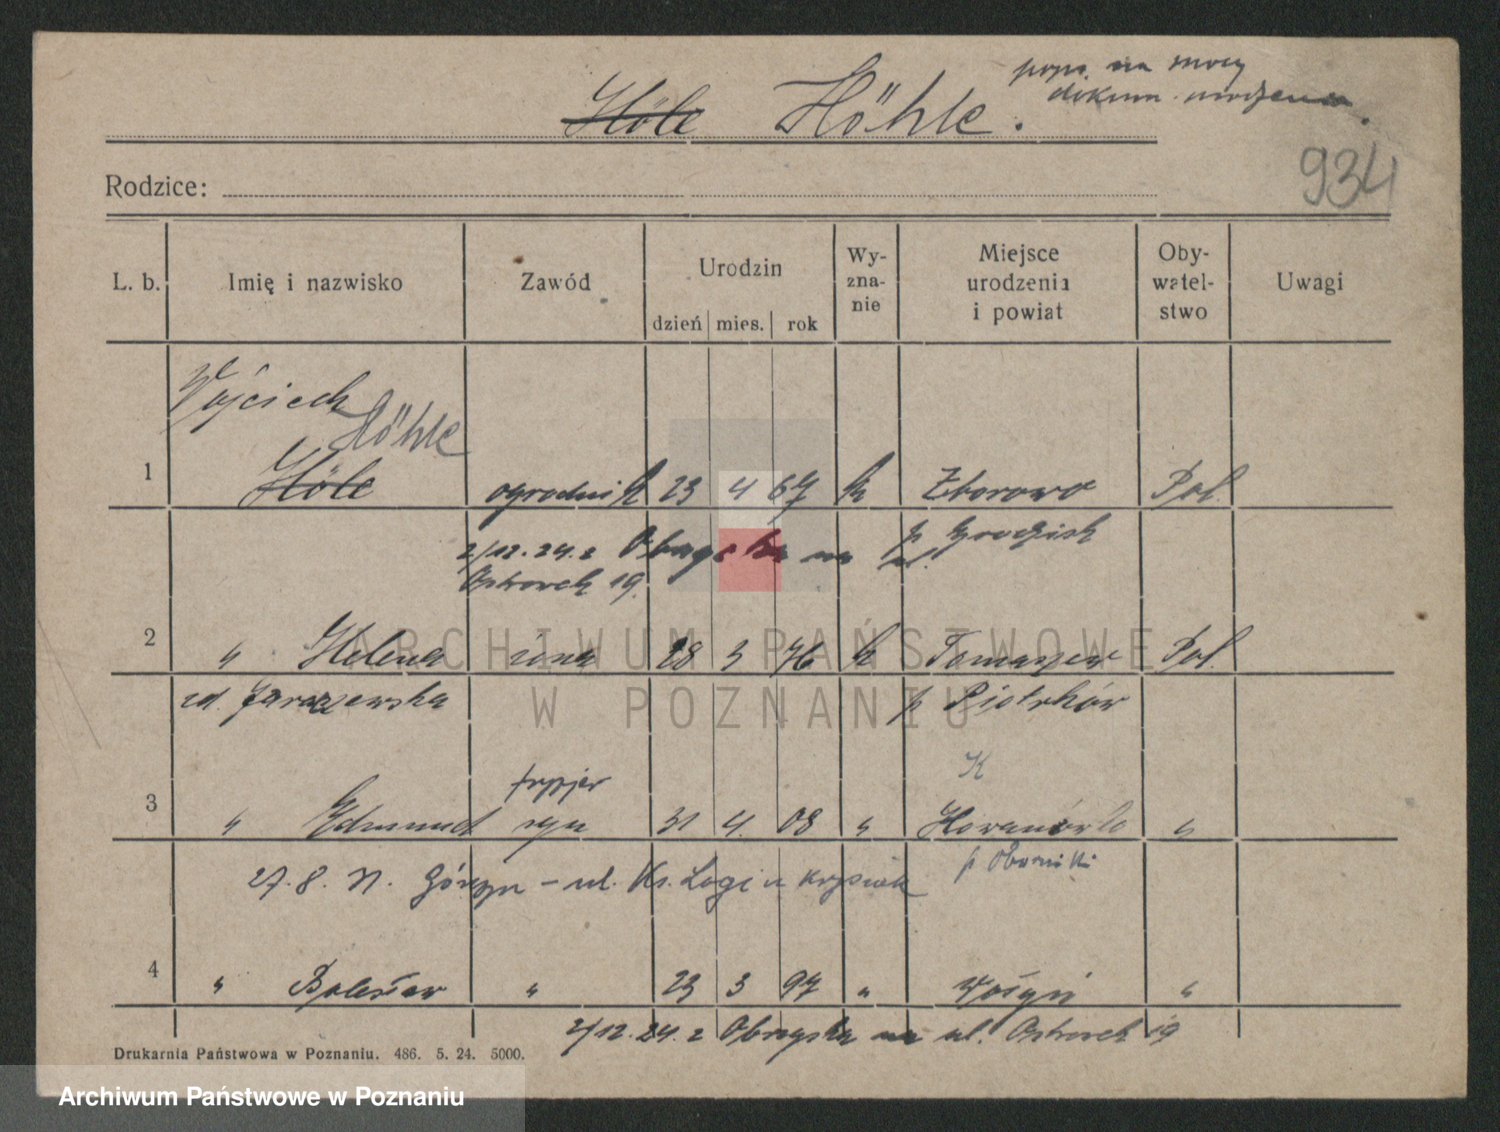 popr. na mocy
Höle Höhle. dokum. urodzenia.
934
Rodzice:
L. b. Imię i nazwisko Zawód Urodzin Wy-zna-nie Miejsce urodzenia i powiat Oby-watel-stwo Uwagi
dzień mies. rok
Wojciech
Höhle
1 Höle ogrodnik 23 4 67 k Zborowo Pol.
p Grodzisk
2/12.24. z Obrzycka na ul.
Ostrorck 19.
2 " Helena żona 28 3 76 k Tomaszew Pol.
zd. Jaraczewska p Piotrków
fryzjer K
3 " Edmund syn 31 4. 08 " "
p Oborniki
27. 8. 31. Górczyn - ul. Ks.
4 " Bolesław " 23 3 97 " "
2/12.24. z Obrzycka na ul. Ostrorck 19
Drukarnia Państwowa w Poznaniu. 486. 5. 24. 5000.
ARCHIWUM PAŃSTWOWE
W POZNANIU
Archiwum Państwowe w Poznaniu